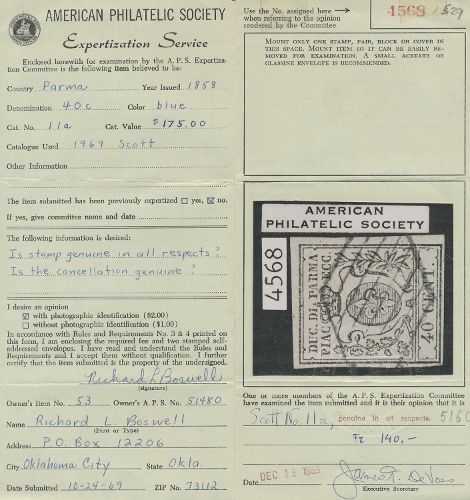 AMERICAN PHILATELIC SOCIETY
Expertization Service
Enclosed herewith for examination by the A.P.S. Expertiza-
tion Committee is the following item believed to be:
Country Parma Year Issued 1858
Denomination 40c Color blue
Cat. No. 11a Cat. Value $175.00
Catalogue Used 1969 Scott
Other Information
The item submitted has been previously expertized yes, no.
If yes, give committee name and date
The following information is desired:
Is stamp genuine in all respects?
Is the cancellation genuine?
I desire an opinion
with photographic identification ($2.00)
without photographic identification ($1.00)
In accordance with Rules and Requirements No. 3 & 4 printed
on this form, I am enclosing the required fee and two stamped self-
addressed envelopes. I have read and understand the Rules and
Requirements and I accept them without qualification. I further
certify that the item submitted is the property of the undersigned.
Richard L Boswell
(signature)
Owner's Item No. 53 Owner's A.P.S. No. 51480
Name Richard L. Boswell
(Print or Type)
Address P.O. Box 12206
City Oklahoma City State Okla.
Date Submitted 10-24-69 ZIP No. 73112
Use the No. assigned here
when referring to the opinion
rendered by the Committee.
4568 /529
MOUNT ONLY ONE STAMP, PAIR, BLOCK OR COVER IN
THIS SPACE. MOUNT ITEM SO IT CAN BE EASILY RE-
MOVED FOR EXAMINATION. A SMALL ACETATE OR
GLASSINE ENVELOPE IS RECOMMENDED.
AMERICAN
PHILATELIC SOCIETY
4568
DUC. DI PARMA
PIAC. ECC.
40 CENT.
One or more members of the A.P.S. Expertization Committee
have examined the item submitted and it is their opinion that it is
Scott No. 11a, genuine in all respects. 5160
140.-
DEC 1969
Date James T. DeVoss
Executive Secretary